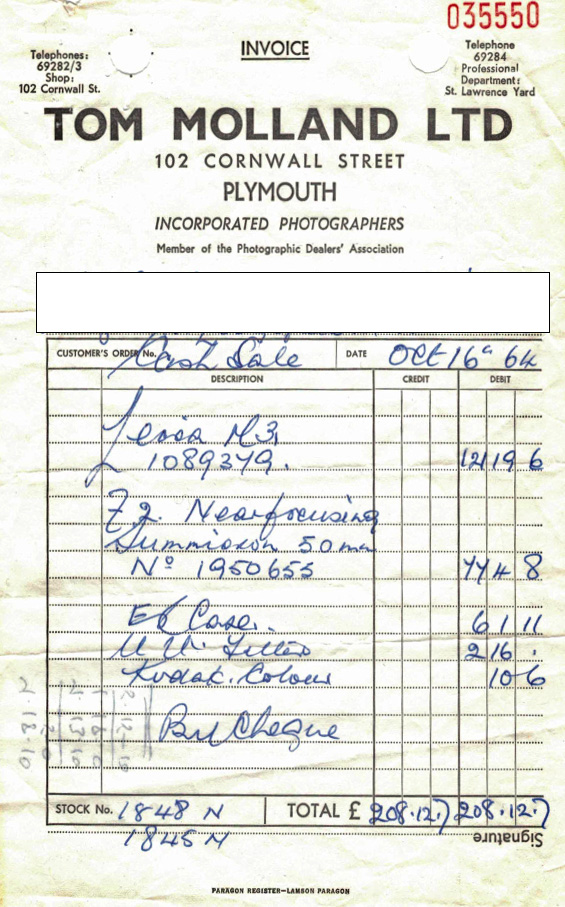 035550
INVOICE
Telephones:
69282/3
Shop:
102 Cornwall St.
Telephone
69284
Professional
Department:
St. Lawrence Yard
TOM MOLLAND LTD
102 CORNWALL STREET
PLYMOUTH
INCORPORATED PHOTOGRAPHERS
Member of the Photographic Dealers' Association
CUSTOMER'S ORDER No. Cash Sale DATE Oct 16 64
DESCRIPTION CREDIT DEBIT
Leica M3
1089379. 121 19 6
F2. Nearfocusing
Summicron 50mm
Nº 1950655 77 4 8
ER Case. 6 1 11
U.V. Filter 2 16 .
Kodak. Colour 10 6
By Cheque
STOCK No. 1848 N TOTAL £ 208.12.7 208.12.7
1845 N
Signature
PARAGON REGISTER—LAMSON PARAGON